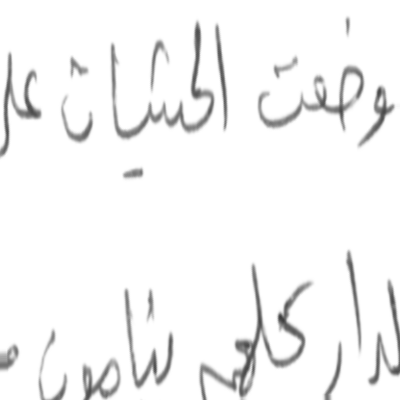 وضعت الحشيات على
الدار كلهم ينامون